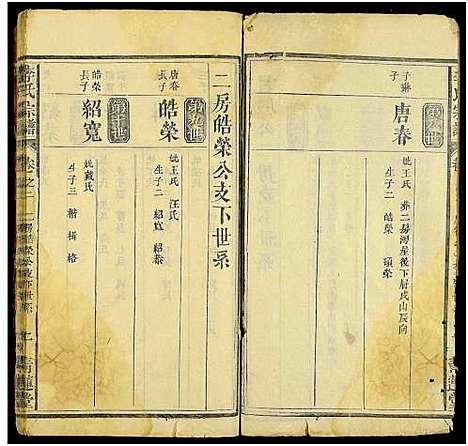 子琳
唐春
妣王氏 葬二房灣屋後下尉戌山辰向
生子二 皓榮 項榮
二房皓榮公支下世系
第九世
唐春
長子
皓榮
妣王氏 汪氏
生子二 紹寬 紹泰
第十世
皓榮
長子
紹寬
妣戴氏
生子三 楷 楫 格
李氏宗譜
卷之二
二房皓榮公支下世系
青蓮堂